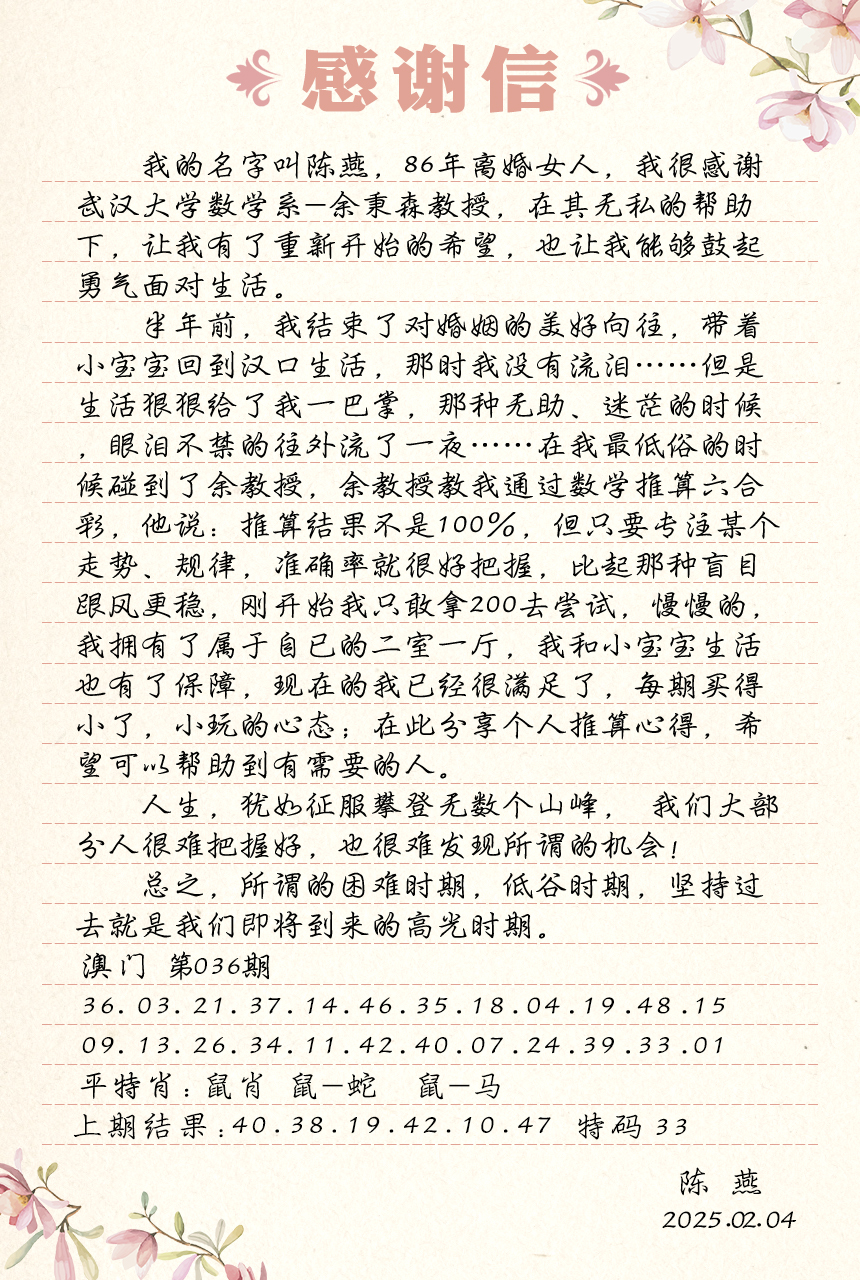 感谢信
我的名字叫陈燕，86年离婚女人，我很感谢
武汉大学数学系—余秉森教授，在其无私的帮助
下，让我有了重新开始的希望，也让我能够鼓起
勇气面对生活。
半年前，我结束了对婚姻的美好向往，带着
小宝宝回到汉口生活，那时我没有流泪……但是
生活狠狠给了我一巴掌，那种无助、迷茫的时候
，眼泪不禁的往外流了一夜……在我最低俗的时
候碰到了余教授，余教授教我通过数学推算六合
彩，他说：推算结果不是100%，但只要专注某个
走势、规律，准确率就很好把握，比起那种盲目
跟风更稳，刚开始我只敢拿200去尝试，慢慢的，
我拥有了属于自已的二室一厅，我和小宝宝生活
也有了保障，现在的我已经很满足了，每期买得
小了，小玩的心态；在此分享个人推算心得，希
望可以帮助到有需要的人。
人生，犹如征服攀登无数个山峰， 我们大部
分人很难把握好，也很难发现所谓的机会！
总之，所谓的困难时期，低谷时期，坚持过
去就是我们即将到来的高光时期。
澳门 第036期
36.03.21.37.14.46.35.18.04.19.48.15
09.13.26.34.11.42.40.07.24.39.33.01
平特肖：鼠肖 鼠—蛇 鼠—马
上期结果：40.38.19.42.10.47 特码 33
陈 燕
2025.02.04